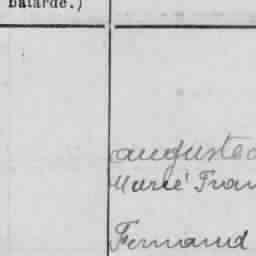 batarde.)
auguste
Marie Fran
Fernand